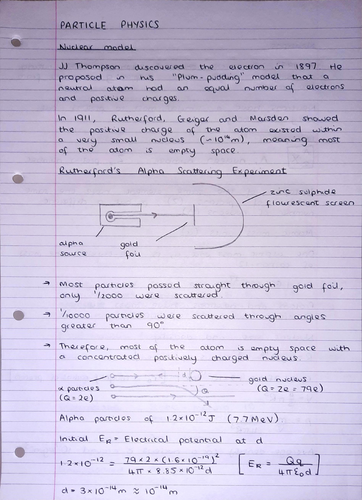 PARTICLE PHYSICS
Nuclear model
JJ Thompson discovered the electron in 1897. He
proposed in his "Plum-pudding" model that a
neutral atom had an equal number of electrons
and positive charges.
In 1911, Rutherford, Geiger and Marsden showed
the positive charge of the atom existed within
a very small nucleus (~10⁻¹⁴m), meaning most
of the atom is empty space.
Rutherford's Alpha Scattering Experiment
zinc sulphide
flourescent screen
alpha
source
gold
foil
→ Most particles passed straight through gold foil,
only 1/2000 were scattered.
→ 1/10000 particles were scattered through angles
greater than 90°
→ Therefore, most of the atom is empty space with
a concentrated positively charged nucleus.
d
α particles
(Q=2e)
Q
gold nucleus
(Q=Ze=79e)
Alpha particles of 1.2×10⁻¹²J (7.7MeV)
Initial Eₖ = Electrical potential at d
1.2×10⁻¹² = 79×2×(1.6×10⁻¹⁹)² / 4π × 8.85×10⁻¹²d [Eₖ = Qq / 4πε₀d]
d = 3×10⁻¹⁴m ≈ 10⁻¹⁴m